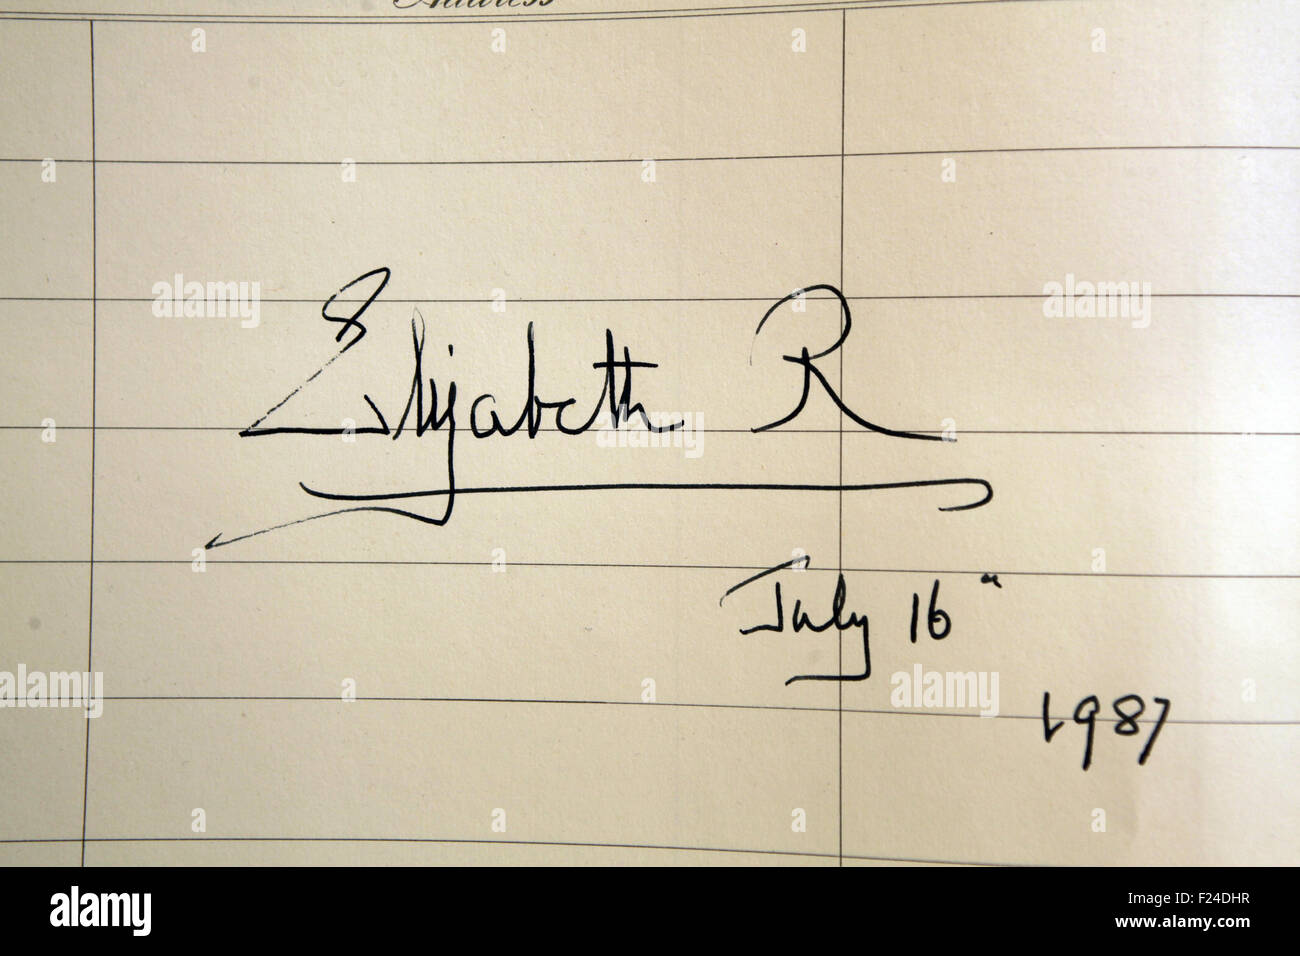 Address
Elizabeth R
July 16th
1987
alamy
alamy
alamy
alamy
alamy
Image ID: F24DHR
www.alamy.com